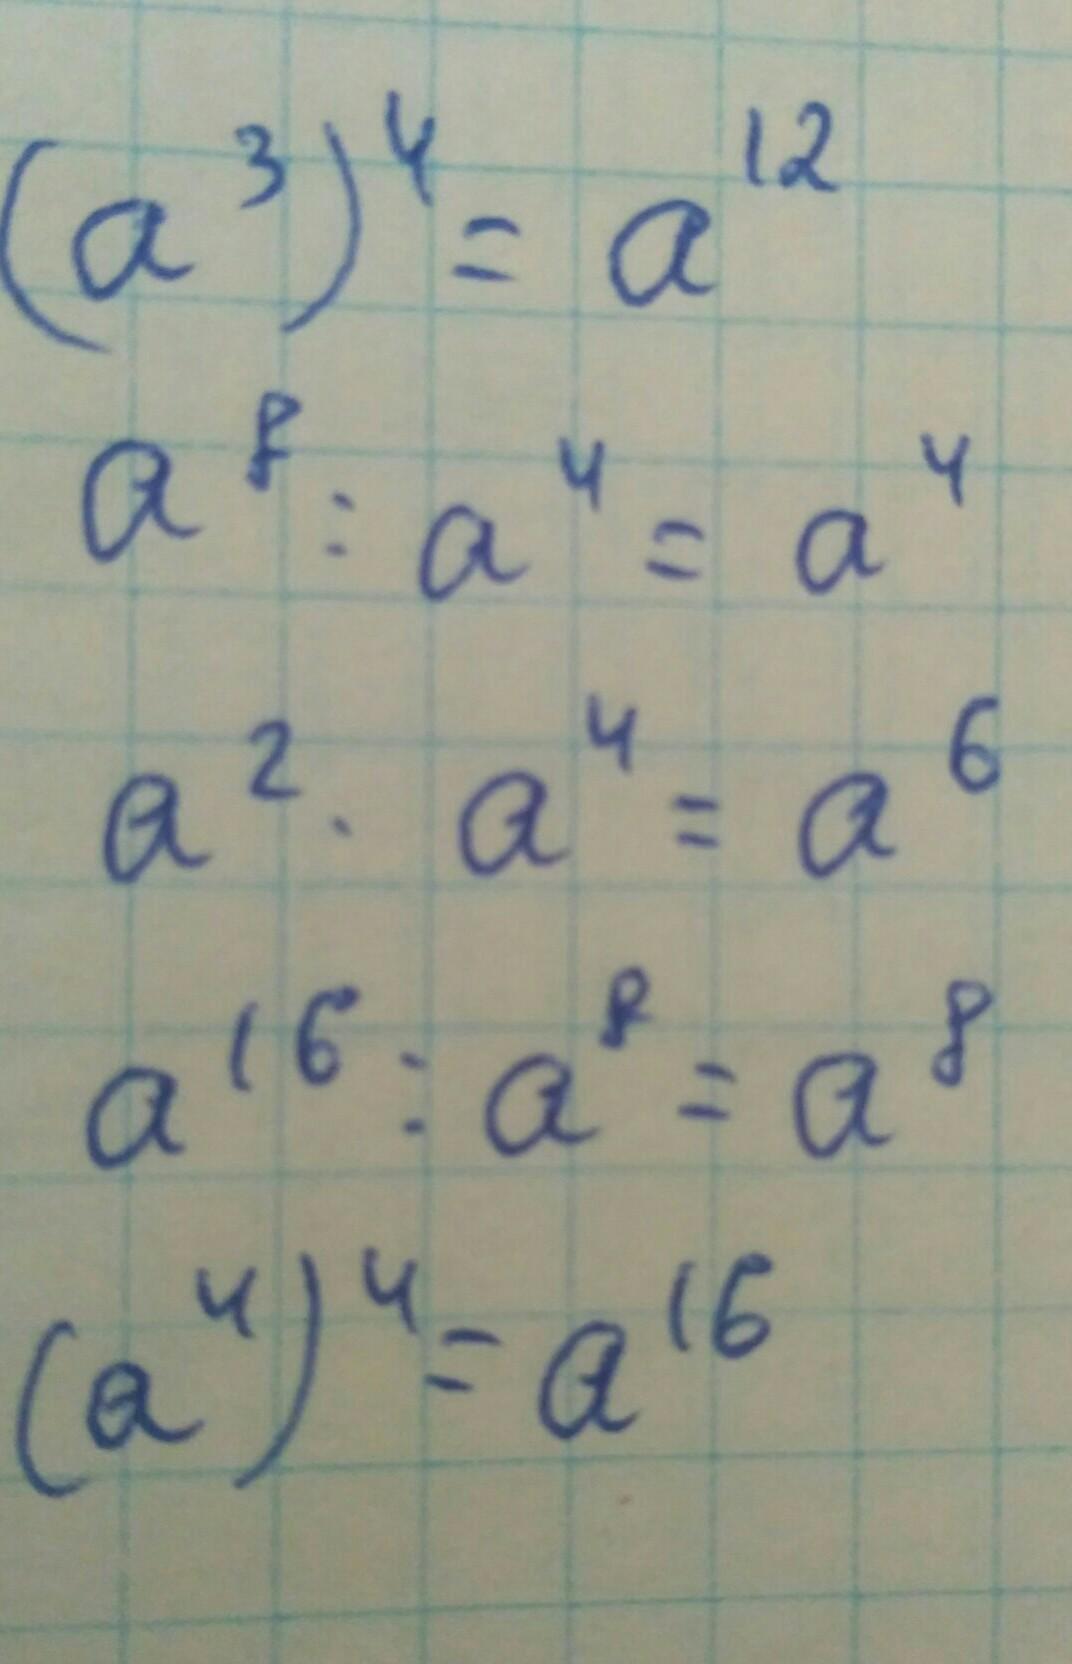 (a³)⁴ = a¹²
a⁸ : a⁴ = a⁴
a² · a⁴ = a⁶
a¹⁶ : a⁸ = a⁸
(a⁴)⁴ = a¹⁶